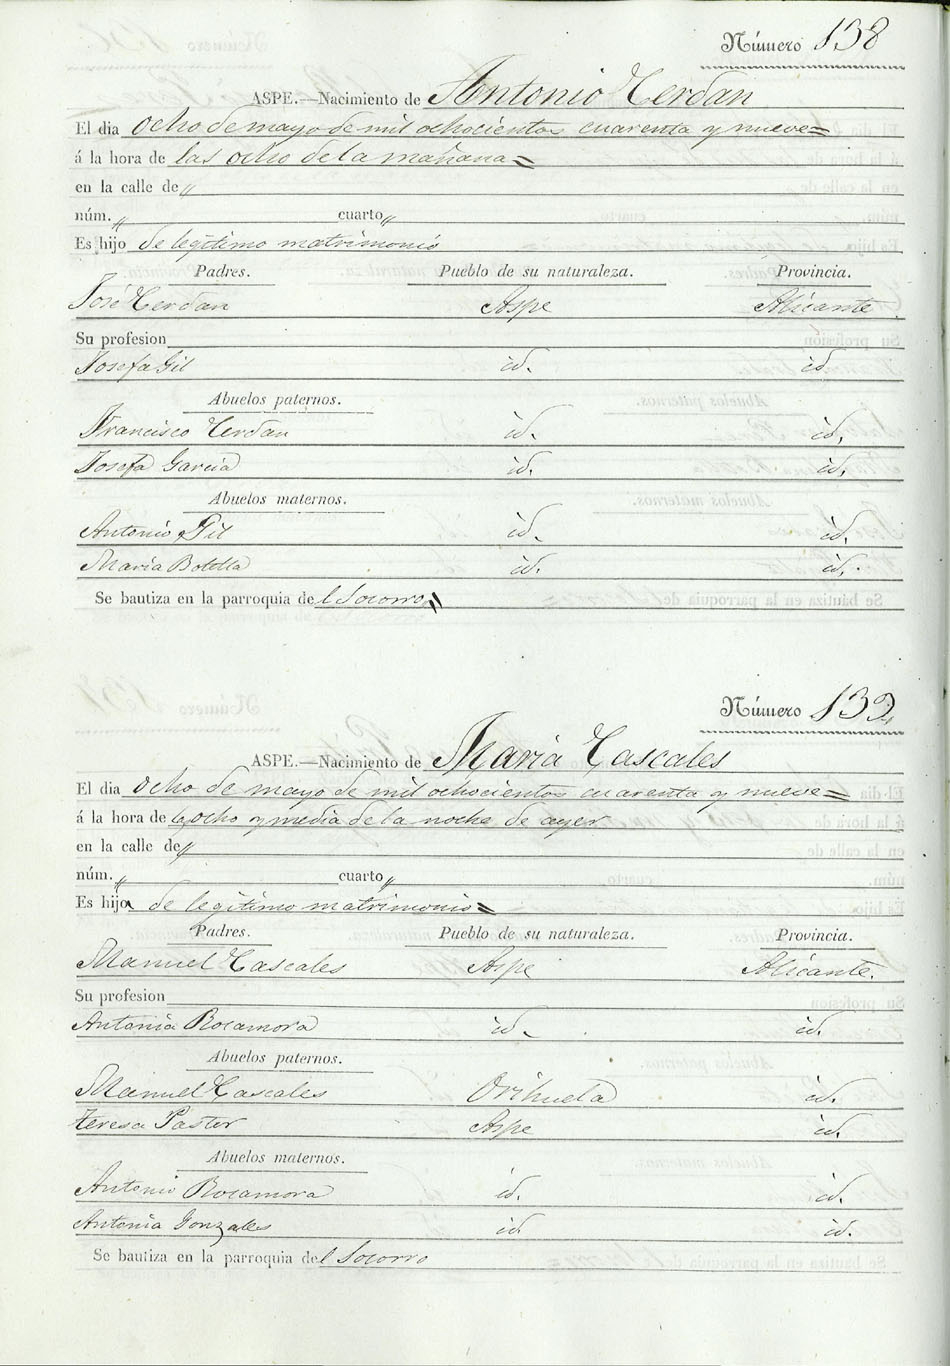 Número 138
ASPE.—Nacimiento de Antonio Cerdan
El dia ocho de mayo de mil ochocientos cuarenta y nueve=
á la hora de las ocho de la mañana=
en la calle de "
núm. " cuarto "
Es hijo de legítimo matrimonio
Padres. Pueblo de su naturaleza. Provincia.
José Cerdan Aspe Alicante
Su profesion
Josefa Gil id. id
Abuelos paternos.
Francisco Cerdan id. id.
Josefa Garcia id. id.
Abuelos maternos.
Antonio Gil id. id.
Maria Botella id. id.
Se bautiza en la parroquia del Socorro "
Número 139
ASPE.—Nacimiento de Maria Cascales
El dia ocho de mayo de mil ochocientos cuarenta y nueve=
á la hora de ocho y media de la noche de ayer
en la calle de "
núm. " cuarto "
Es hija de legítimo matrimonio=
Padres. Pueblo de su naturaleza. Provincia.
Manuel Cascales Aspe Alicante.
Su profesion
Antonia Rocamora id. id.
Abuelos paternos.
Manuel Cascales Orihuela id.
Teresa Pastor Aspe id.
Abuelos maternos.
Antonio Rocamora id. id.
Antonia Gonzales id id.
Se bautiza en la parroquia del Socorro